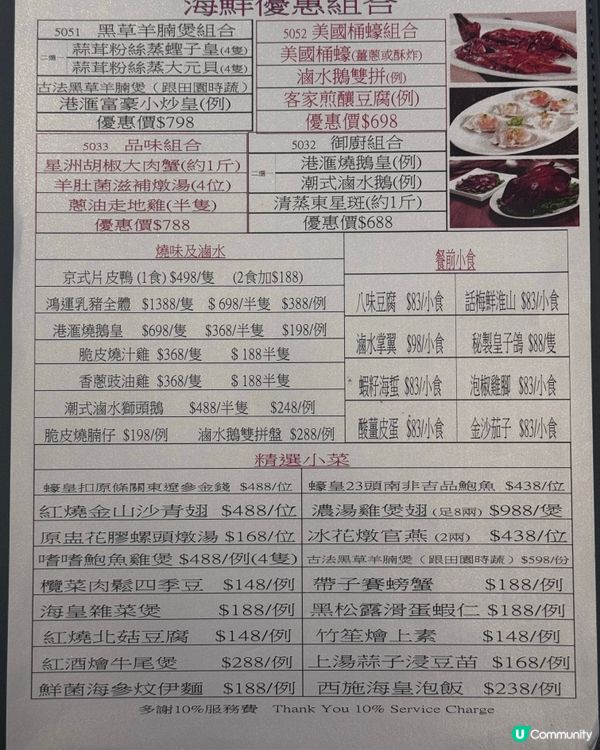 海鮮優惠組合
5051 黑草羊腩煲組合
二選一
蒜茸粉絲蒸蟶子皇(4隻)
蒜茸粉絲蒸大元貝(4隻)
古法黑草羊腩煲(跟田園時蔬)
港滙富豪小炒皇(例)
優惠價$798
5052 美國桶蠔組合
美國桶蠔(薑蔥或酥炸)
滷水鵝雙拼(例)
客家煎釀豆腐(例)
優惠價$698
5033 品味組合
星洲胡椒大肉蟹(約1斤)
羊肚菌滋補燉湯(4位)
蔥油走地雞(半隻)
優惠價$788
5032 御廚組合
二選一
港滙燒鵝皇(例)
潮式滷水鵝(例)
清蒸東星斑(約1斤)
優惠價$688
燒味及滷水
京式片皮鴨 (1食) $498/隻 (2食加$188)
鴻運乳豬全體 $1388/隻 $698/半隻 $388/例
港滙燒鵝皇 $698/隻 $368/半隻 $198/例
脆皮燒汁雞 $368/隻 $188半隻
香蔥豉油雞 $368/隻 $188半隻
潮式滷水獅頭鵝 $488/半隻 $248/例
脆皮燒腩仔 $198/例 滷水鵝雙拼盤 $288/例
餐前小食
八味豆腐 $83/小食 話梅鮮淮山 $83/小食
滷水掌翼 $98/小食 秘製皇子鴿 $88/隻
蝦籽海蜇 $83/小食 泡椒雞腳 $83/小食
酸薑皮蛋 $83/小食 金沙茄子 $83/小食
精選小菜
蠔皇扣原條關東遼參金錢 $488/位 蠔皇23頭南非吉品鮑魚 $438/位
紅燒金山沙青翅 $488/位 濃湯雞煲翅 (足8兩) $988/煲
原盅花膠螺頭燉湯 $168/位 冰花燉官燕 (2兩) $438/位
嗜嗜鮑魚雞煲 $488/例(4隻) 古法黑草羊腩煲(跟田園時蔬) $598/份
欖菜肉鬆四季豆 $148/例 帶子賽螃蟹 $188/例
海皇雜菜煲 $188/例 黑松露滑蛋蝦仁 $188/例
紅燒北菇豆腐 $148/例 竹笙燴上素 $148/例
紅酒燴牛尾煲 $288/例 上湯蒜子浸豆苗 $168/例
鮮菌海參炆伊麵 $188/例 西施海皇泡飯 $238/例
多謝10%服務費 Thank You 10% Service Charge
U Community